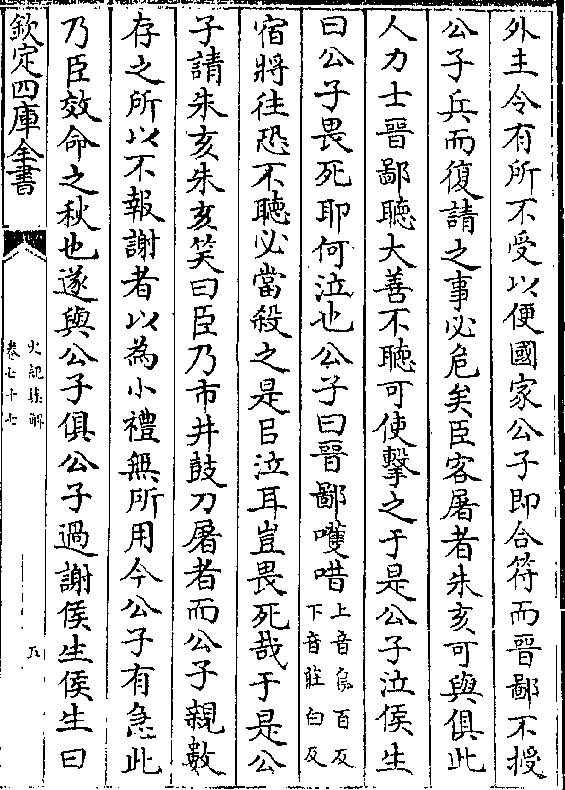 外主令有所不受以便國家公子即合符而晉鄙不授
公子兵而復請之事必危矣臣客屠者朱亥可與俱此
人力士晉鄙聽大善不聽可使擊之于是公子泣侯生
曰公子畏死耶何泣也公子曰晉鄙嚄唶上音烏百反下音莊白反
宿將往恐不聽必當殺之是㠯泣耳豈畏死哉于是公
子請朱亥朱亥笑曰臣乃市井鼓刀屠者而公子親數
存之所以不報謝者以為小禮無所用今公子有急此
乃臣效命之秋也遂與公子俱公子過謝侯生侯生曰
欽定四庫全書
史記集解
卷七十七
五